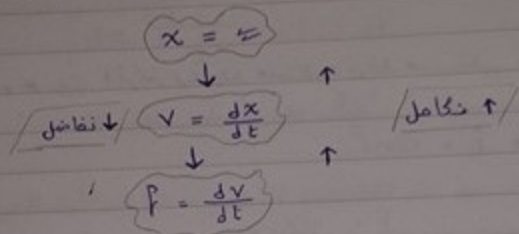 x = =
↓ ↑
↓ تفاضل v = dx/dt تكامل ↑
↓ ↑
f = dv/dt